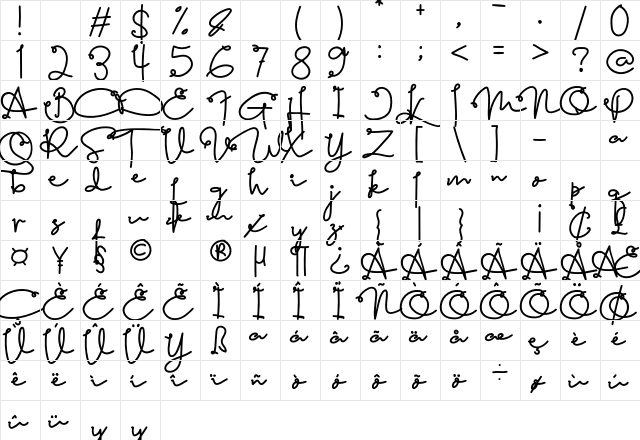 ! # $ % & ( ) * + , - . / 0
1 2 3 4 5 6 7 8 9 : ; < = > ? @
A B C D E F G H I J K L M N O P
Q R S T U V W X Y Z [ \ ] _ a
b c d e f g h i j k l m n o p q
r s t u v w x y z { | } ¡ ¢ £
¤ ¥ § © ® µ ¶ ¿ À Á Â Ã Ä Å Æ
Ç È É Ê Ë Ì Í Î Ï Ñ Ò Ó Ô Õ Ö Ø
Ù Ú Û Ü Ý ß à á â ã ä å æ ç è é
ê ë ì í î ï ñ ò ó ô õ ö ÷ ø ù ú
û ü ý ÿ